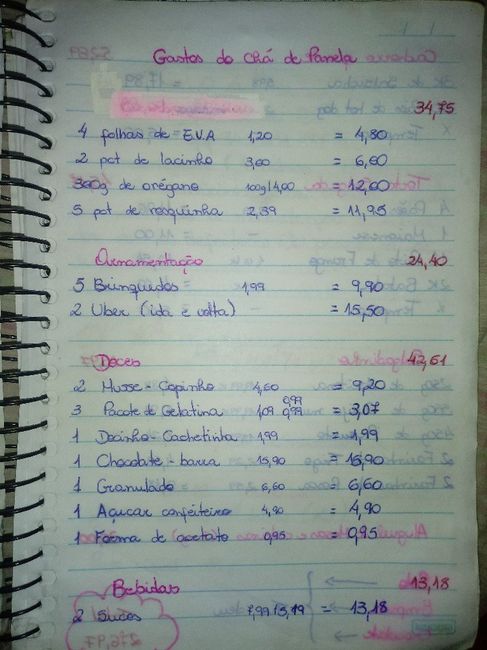 Gastos do chá de Panela
34,75
4 folhas de E.V.A 1,20 = 4,80
2 pct de lacinho 3,00 = 6,00
300g de orégano 100g/4,00 = 12,00
5 pct de rosquinha 2,39 = 11,95
Ornamentação 24,40
5 Brinquedos 1,99 = 9,90
2 Uber (ida e volta) = 15,50
Doces 42,61
2 Musse - Copinho 4,60 = 9,20
0,99
3 Pacote de Gelatina 1,09 0,99 = 3,07
1 Docinho - Cachetinta 1,99 = 1,99
1 Chocolate - barra 15,90 = 15,90
1 Granulado 6,60 = 6,60
1 Açucar confeiteiro 4,90 = 4,90
1 Forma de (acetato 0,95 = 0,95
Bebidas 13,18
2 Sucos 7,99/5,19 = 13,18